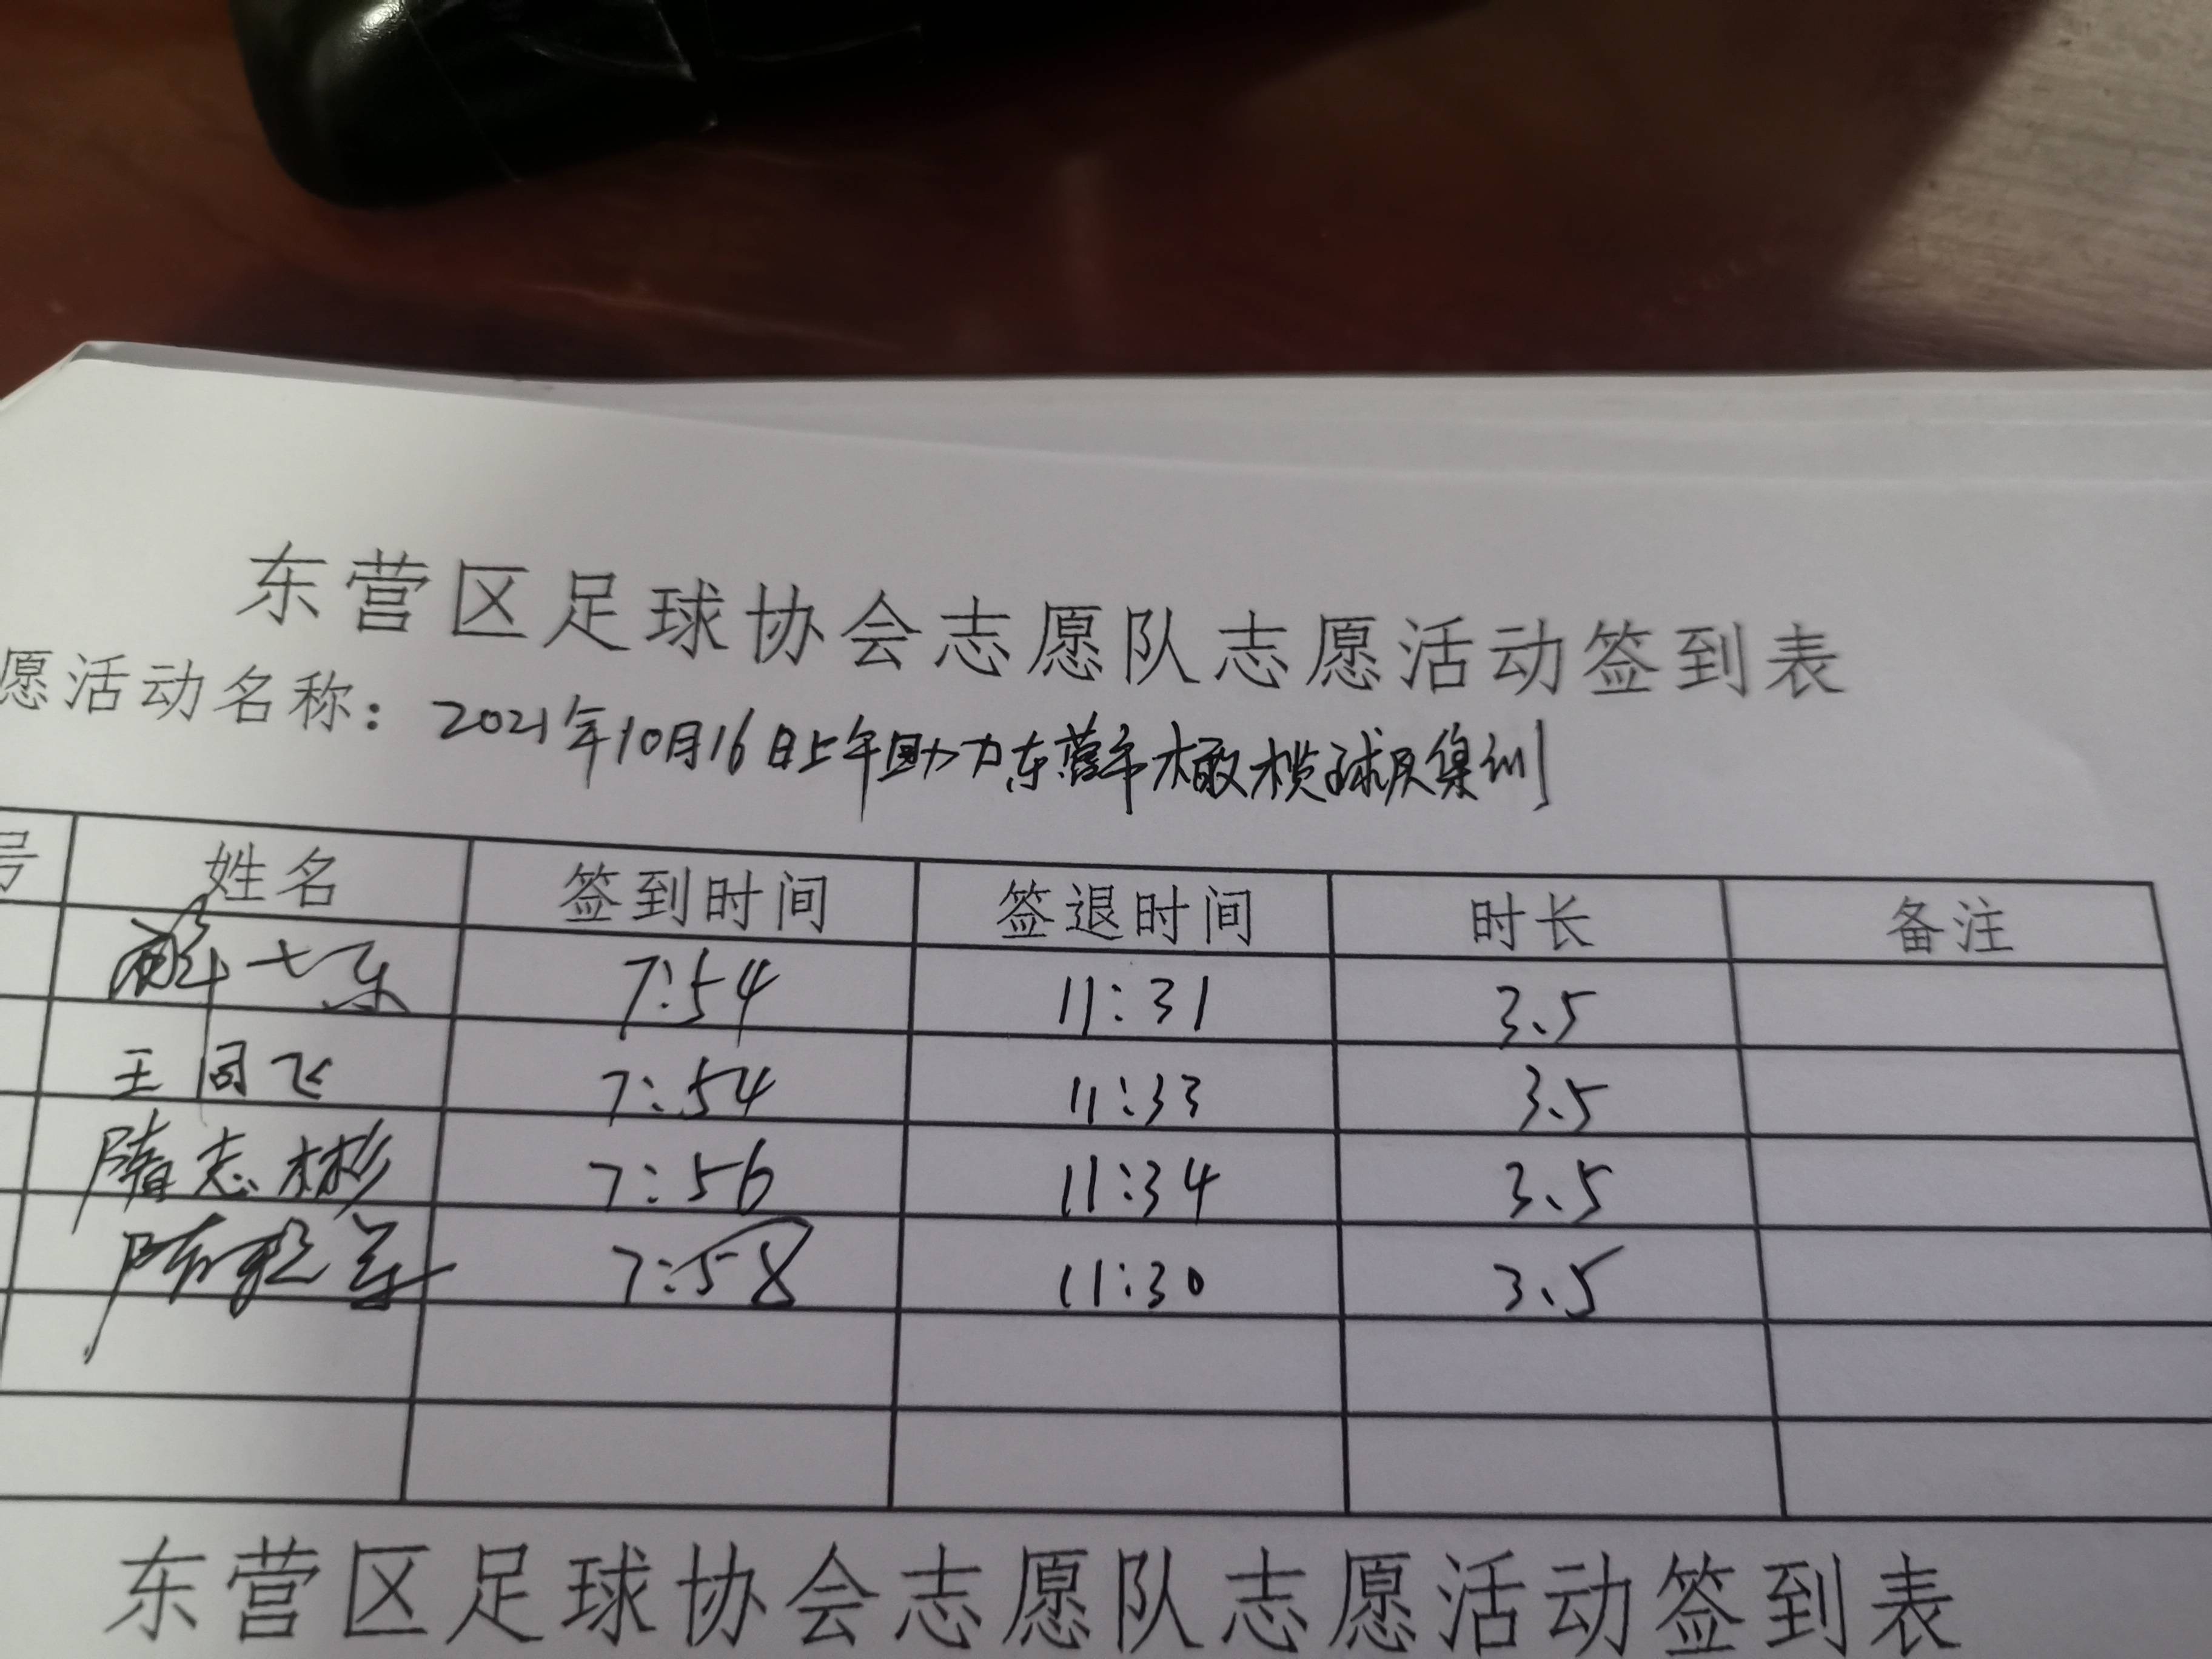 东营区足球协会志愿队志愿活动签到表
愿活动名称：2021年10月16日上午助力东营市橄榄球员集训
号 姓名 签到时间 签退时间 时长 备注
7:54 11:31 3.5
王同飞 7:54 11:33 3.5
隋志彬 7:56 11:34 3.5
7:58 11:30 3.5
东营区足球协会志愿队志愿活动签到表